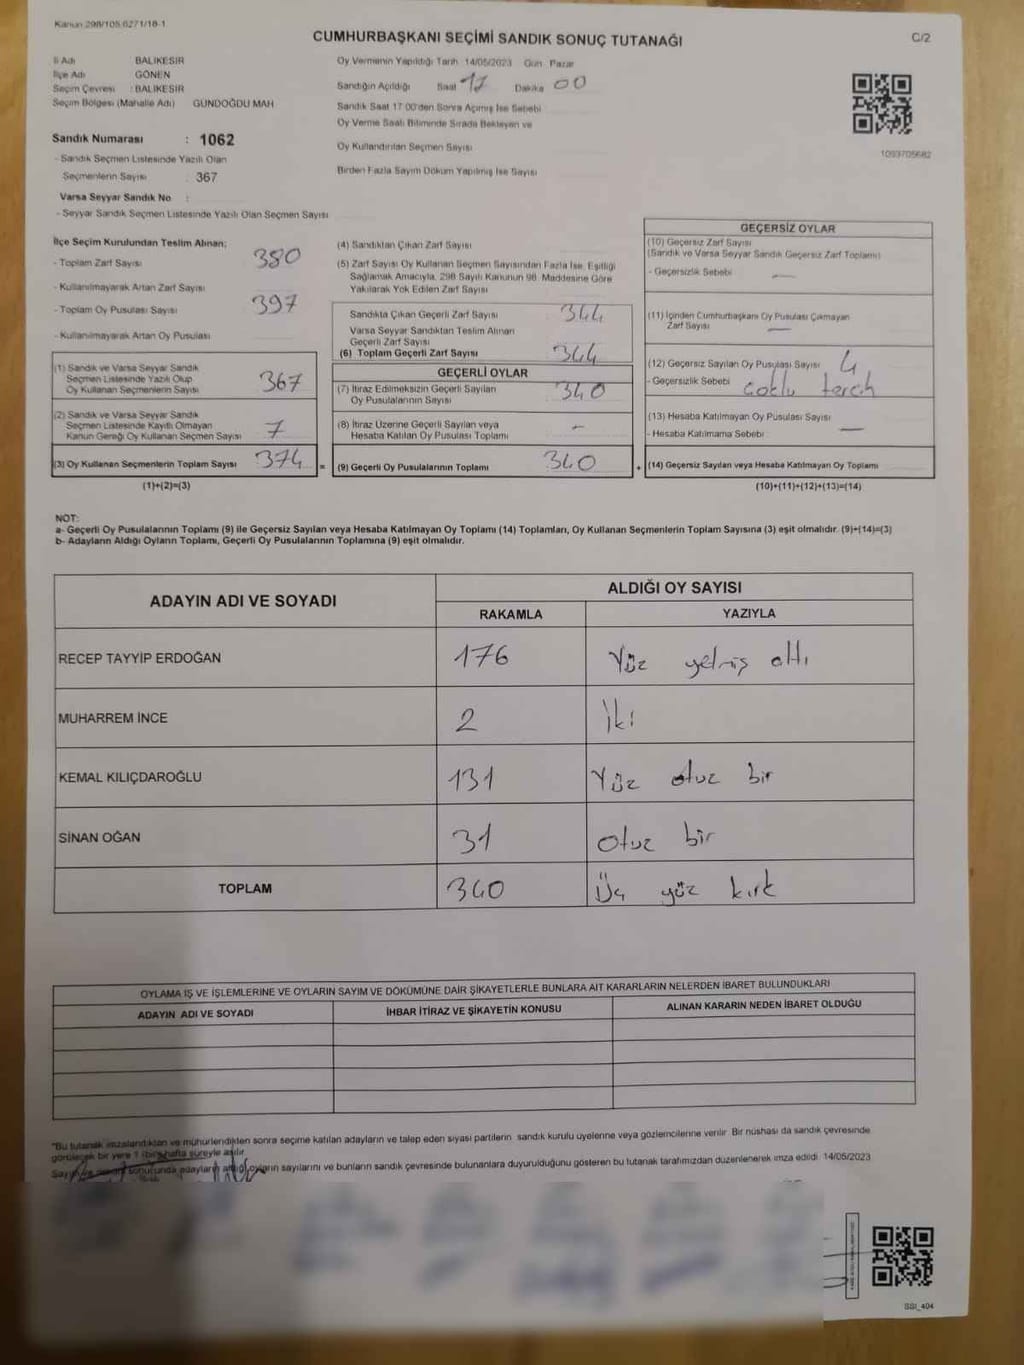 Kanun 298/105 6271/18-1
CUMHURBAŞKANI SEÇİMİ SANDIK SONUÇ TUTANAĞI
C/2
İl Adı BALIKESİR
İlçe Adı GÖNEN
Seçim Çevresi : BALIKESİR
Seçim Bölgesi (Mahalle Adı) GÜNDOĞDU MAH
Oy Vermenin Yapıldığı Tarih 14/05/2023 Gün Pazar
Sandığın Açıldığı Saat 17 Dakika 00
Sandık Saat 17 00'den Sonra Açılmış İse Sebebi
Oy Verme Saati Bitiminde Sırada Bekleyen ve
Oy Kullandırılan Seçmen Sayısı
Birden Fazla Sayım Döküm Yapılmış İse Sayısı
1093705682
Sandık Numarası : 1062
- Sandık Seçmen Listesinde Yazılı Olan
Seçmenlerin Sayısı 367
Varsa Seyyar Sandık No :
- Seyyar Sandık Seçmen Listesinde Yazılı Olan Seçmen Sayısı
İlçe Seçim Kurulundan Teslim Alınan;
- Toplam Zarf Sayısı 380
- Kullanılmayarak Artan Zarf Sayısı
- Toplam Oy Pusulası Sayısı 397
- Kullanılmayarak Artan Oy Pusulası
(1) Sandık ve Varsa Seyyar Sandık
Seçmen Listesinde Yazılı Olup
Oy Kullanan Seçmenlerin Sayısı 367
(2) Sandık ve Varsa Seyyar Sandık
Seçmen Listesinde Kayıtlı Olmayan
Kanun Gereği Oy Kullanan Seçmen Sayısı 7
(3) Oy Kullanan Seçmenlerin Toplam Sayısı 374 =
(1)+(2)=(3)
(4) Sandıktan Çıkan Zarf Sayısı
(5) Zarf Sayısı Oy Kullanan Seçmen Sayısından Fazla İse, Eşitliği
Sağlamak Amacıyla, 298 Sayılı Kanunun 98. Maddesine Göre
Yakılarak Yok Edilen Zarf Sayısı
Sandıkta Çıkan Geçerli Zarf Sayısı 344
Varsa Seyyar Sandıktan Teslim Alınan
Geçerli Zarf Sayısı
(6) Toplam Geçerli Zarf Sayısı 344
GEÇERLİ OYLAR
(7) İtiraz Edilmeksizin Geçerli Sayılan
Oy Pusulalarının Sayısı 340
(8) İtiraz Üzerine Geçerli Sayılan veya
Hesaba Katılan Oy Pusulası Toplamı -
(9) Geçerli Oy Pusulalarının Toplamı 340 +
GEÇERSİZ OYLAR
(10) Geçersiz Zarf Sayısı
(Sandık ve Varsa Seyyar Sandık Geçersiz Zarf Toplamı)
- Geçersizlik Sebebi —
(11) İçinden Cumhurbaşkanı Oy Pusulası Çıkmayan
Zarf Sayısı —
(12) Geçersiz Sayılan Oy Pusulası Sayısı 4
- Geçersizlik Sebebi çoklu tercih
(13) Hesaba Katılmayan Oy Pusulası Sayısı
- Hesaba Katılmama Sebebi —
(14) Geçersiz Sayılan veya Hesaba Katılmayan Oy Toplamı
(10)+(11)+(12)+(13)=(14)
NOT:
a- Geçerli Oy Pusulalarının Toplamı (9) ile Geçersiz Sayılan veya Hesaba Katılmayan Oy Toplamı (14) Toplamları, Oy Kullanan Seçmenlerin Toplam Sayısına (3) eşit olmalıdır. (9)+(14)=(3)
b- Adayların Aldığı Oyların Toplamı, Geçerli Oy Pusulalarının Toplamına (9) eşit olmalıdır.
ADAYIN ADI VE SOYADI ALDIĞI OY SAYISI
RAKAMLA YAZIYLA
RECEP TAYYİP ERDOĞAN 176 Yüz yetmiş altı
MUHARREM İNCE 2 İki
KEMAL KILIÇDAROĞLU 131 Yüz otuz bir
SİNAN OĞAN 31 otuz bir
TOPLAM 340 Üç yüz kırk
OYLAMA İŞ VE İŞLEMLERİNE VE OYLARIN SAYIM VE DÖKÜMÜNE DAİR ŞİKAYETLERLE BUNLARA AİT KARARLARIN NELERDEN İBARET BULUNDUKLARI
ADAYIN ADI VE SOYADI İHBAR İTİRAZ VE ŞİKAYETİN KONUSU ALINAN KARARIN NEDEN İBARET OLDUĞU
"Bu tutanak imzalandıktan ve mühürlendikten sonra seçime katılan adayların ve talep eden siyasi partilerin sandık kurulu üyelerine veya gözlemcilerine verilir. Bir nüshası da sandık çevresinde
görülecek bir yere 1 (bir) hafta süreyle asılır.
Sayım ve döküm sonucunda adayların aldığı oyların sayılarını ve bunların sandık çevresinde bulunanlara duyurulduğunu gösteren bu tutanak tarafımızdan düzenlenerek imza edildi. 14/05/2023
SSI_404